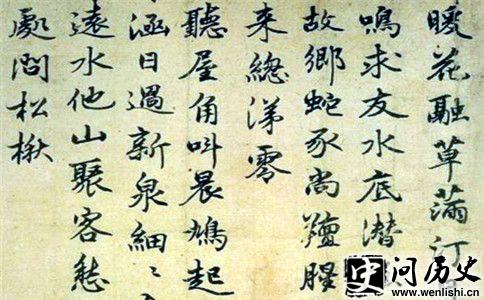 暖花融草滿汀
鳴求友水底潛
故鄉蛇豕尚羶腥
来總涕零
聽屋角叫晨鳩起
涵日過新泉細〻
遠水他山聚客愁
處問松楸
史问历史
www.wenlishi.cn